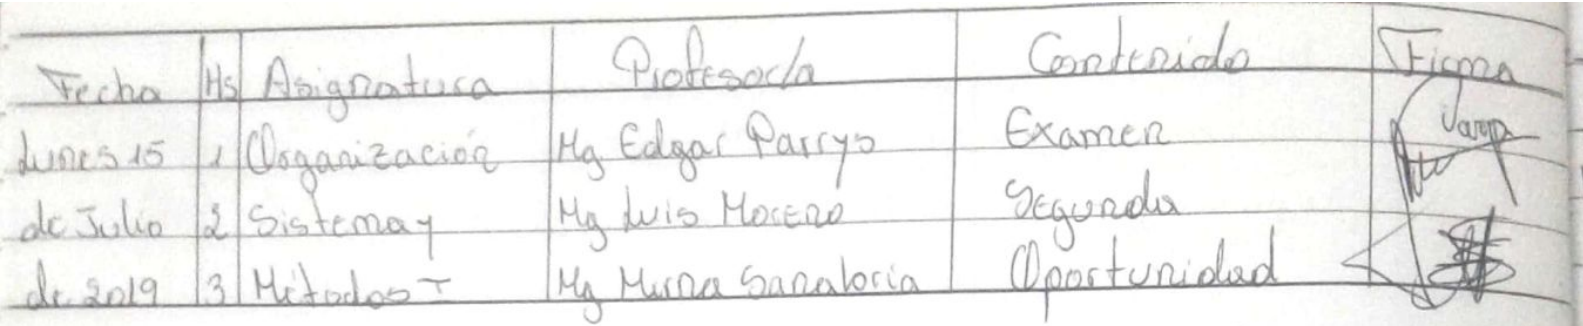 Fecha Hs Asignatura Profesor/a Contenido Firma
Lunes 15 1 Organización Mg Edgar Parryo Examen
de Julio 2 Sistema y Mg Luis Moreno Segunda
de 2019 3 Métodos I Mg Mirna Sanabria Oportunidad